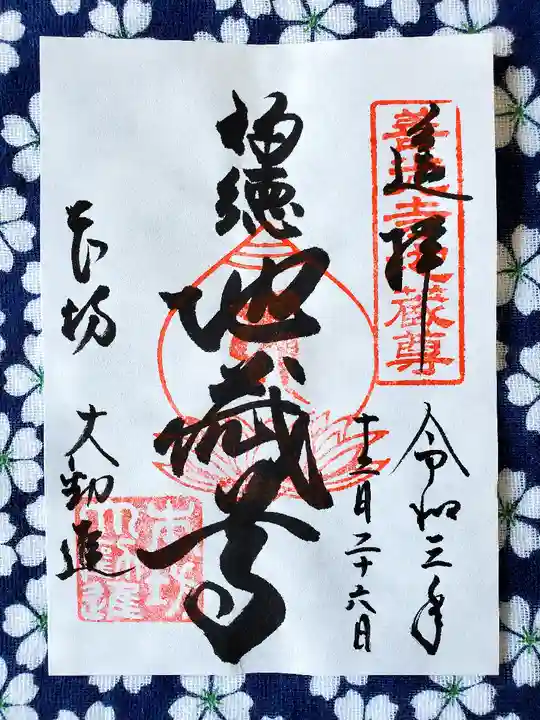 奉拝
善光寺地蔵尊
令和三年
十二月二十六日
地蔵尊
本坊 大勧進
本坊
大勧進